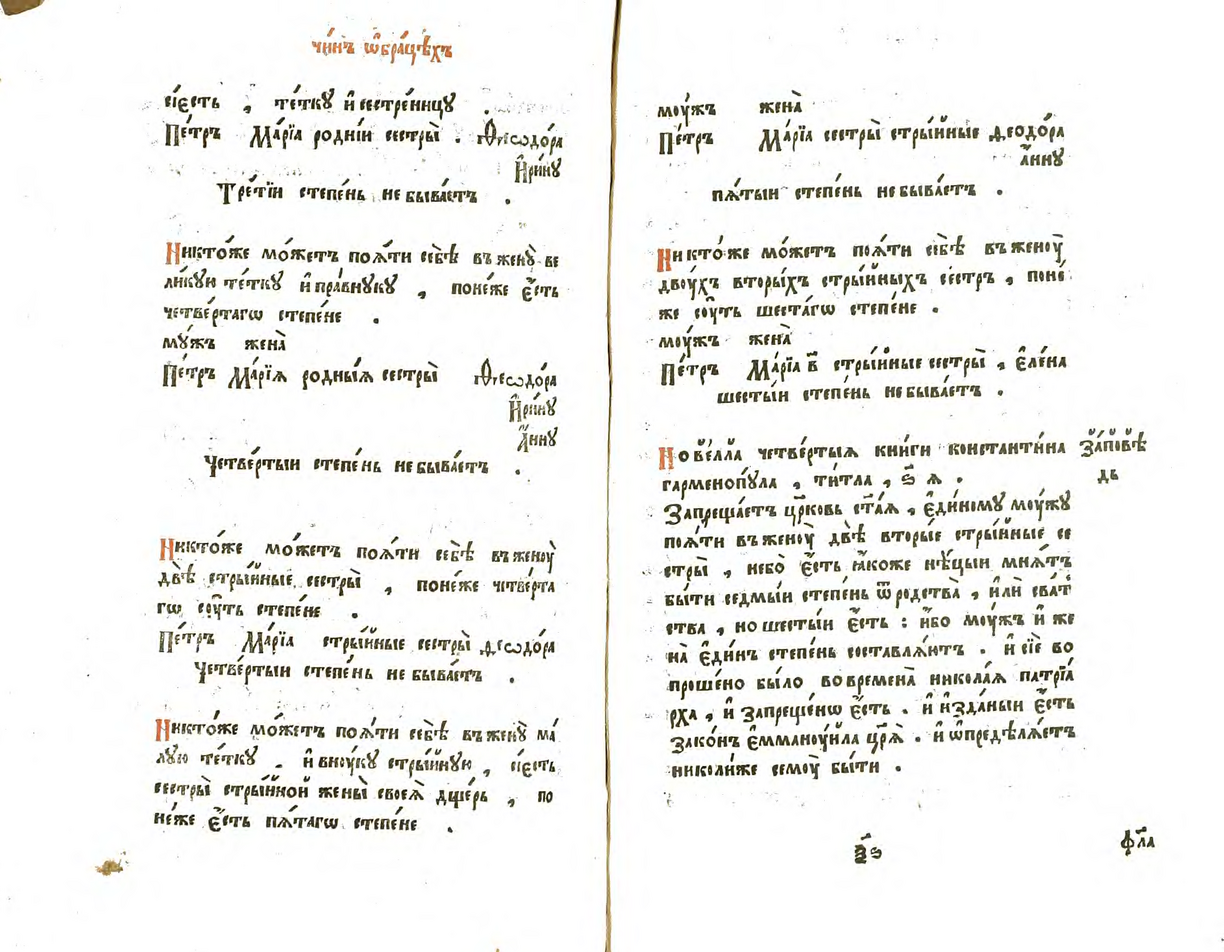 чи́нъ ѡ҆бра́цѣхъ
сїе́сть , те́ткꙋ и҆ сестре́ницꙋ .
Пе́тръ Ма́рїа родні́и сестры̀ . Ѳео́дѡра
И҆ри́нꙋ
Тре́тїи степе́нь не быва́етъ .
Никто́же мо́жетъ поѧ́ти себѣ̀ въ женꙋ̀ ве
ли́кꙋю те́ткꙋ и҆ пра́внꙋкꙋ , поне́же є҆́сть
четве́ртагѡ степе́не .
мꙋ́жъ жена̀
Пе́тръ Ма́рїѧ родны́ѧ сестры̀ Ѳео́дѡра
И҆ри́нꙋ
А҆́ннꙋ
Четве́ртыи степе́нь не быва́етъ .
Никто́же мо́жетъ поѧ́ти себѣ̀ въ женоу̀
двѣ̀ стры́йные сестры̀ , поне́же че́тве́рта
гѡ соу́ть степе́не .
Пе́тръ Ма́рїа стры́йные сестры̀ Ѳеодо́ра
Четве́ртыи степе́нь не быва́етъ .
Никто́же мо́жетъ поѧ́ти себѣ̀ въ женꙋ̀ ма́
лꙋю те́ткꙋ . и҆ вноу́кꙋ стры́йнꙋю , сїе́сть
сестры̀ стры́йной жены̀ своеѧ̀ дще́рь , по
не́же є҆́сть пѧ́тагѡ степе́не .
моу́жъ жена̀
Пе́тръ Ма́рїа сестры̀ стры́йные Ѳеодо́ра
а҆́ннꙋ
пѧ́тыи степе́нь не быва́етъ .
Никто́же мо́жетъ поѧ́ти себѣ̀ въ женоу̀
двоу́хъ вторы́хъ стры́йныхъ се́стръ , поне́
же соу́ть шеста́гѡ степе́не .
моу́жъ жена̀
Пе́тръ Ма́рїа в҃ стры́йные сестры̀ , є҆ле́на
шесты́и степе́нь не быва́етъ .
Нове́лла четве́ртыѧ кни́ги константи́на за́повѣ
гармено́пꙋла , ти́тла , ѕ҃ ѧ . дь
Запреща́етъ цр҃ковь ст҃аѧ , є҆ди́номꙋ моу́жꙋ
поѧ́ти въ женоу̀ двѣ̀ вторы́е стры́йные се
стры̀ , небо̀ є҆́сть ꙗ҆́коже нѣ́цыи мнѧ́тъ
бы́ти седмы́и степе́нь ѿ родства̀ , и҆лѝ сват
ства , но шесты́и є҆́сть : и҆́бо моу́жъ и҆ же
на̀ є҆ди́нъ степе́нь составлѧ́ютъ . и҆ сїѐ во
проше́но бы́ло во времена̀ никола́ѧ патрїа́
рха , и҆ запреще́нѡ є҆́сть . и҆ и҆зда́ныи є҆́сть
зако́нъ є҆ммануи́ла цр҃ѧ̀ . и҆ ѡ҆предѣлѧ́етъ
николи́же семоу̀ бы́ти .
фл҃а